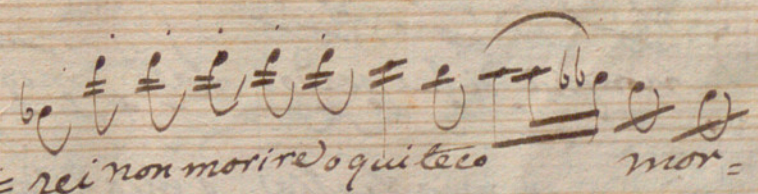 = rei non morire o qui teco mor=